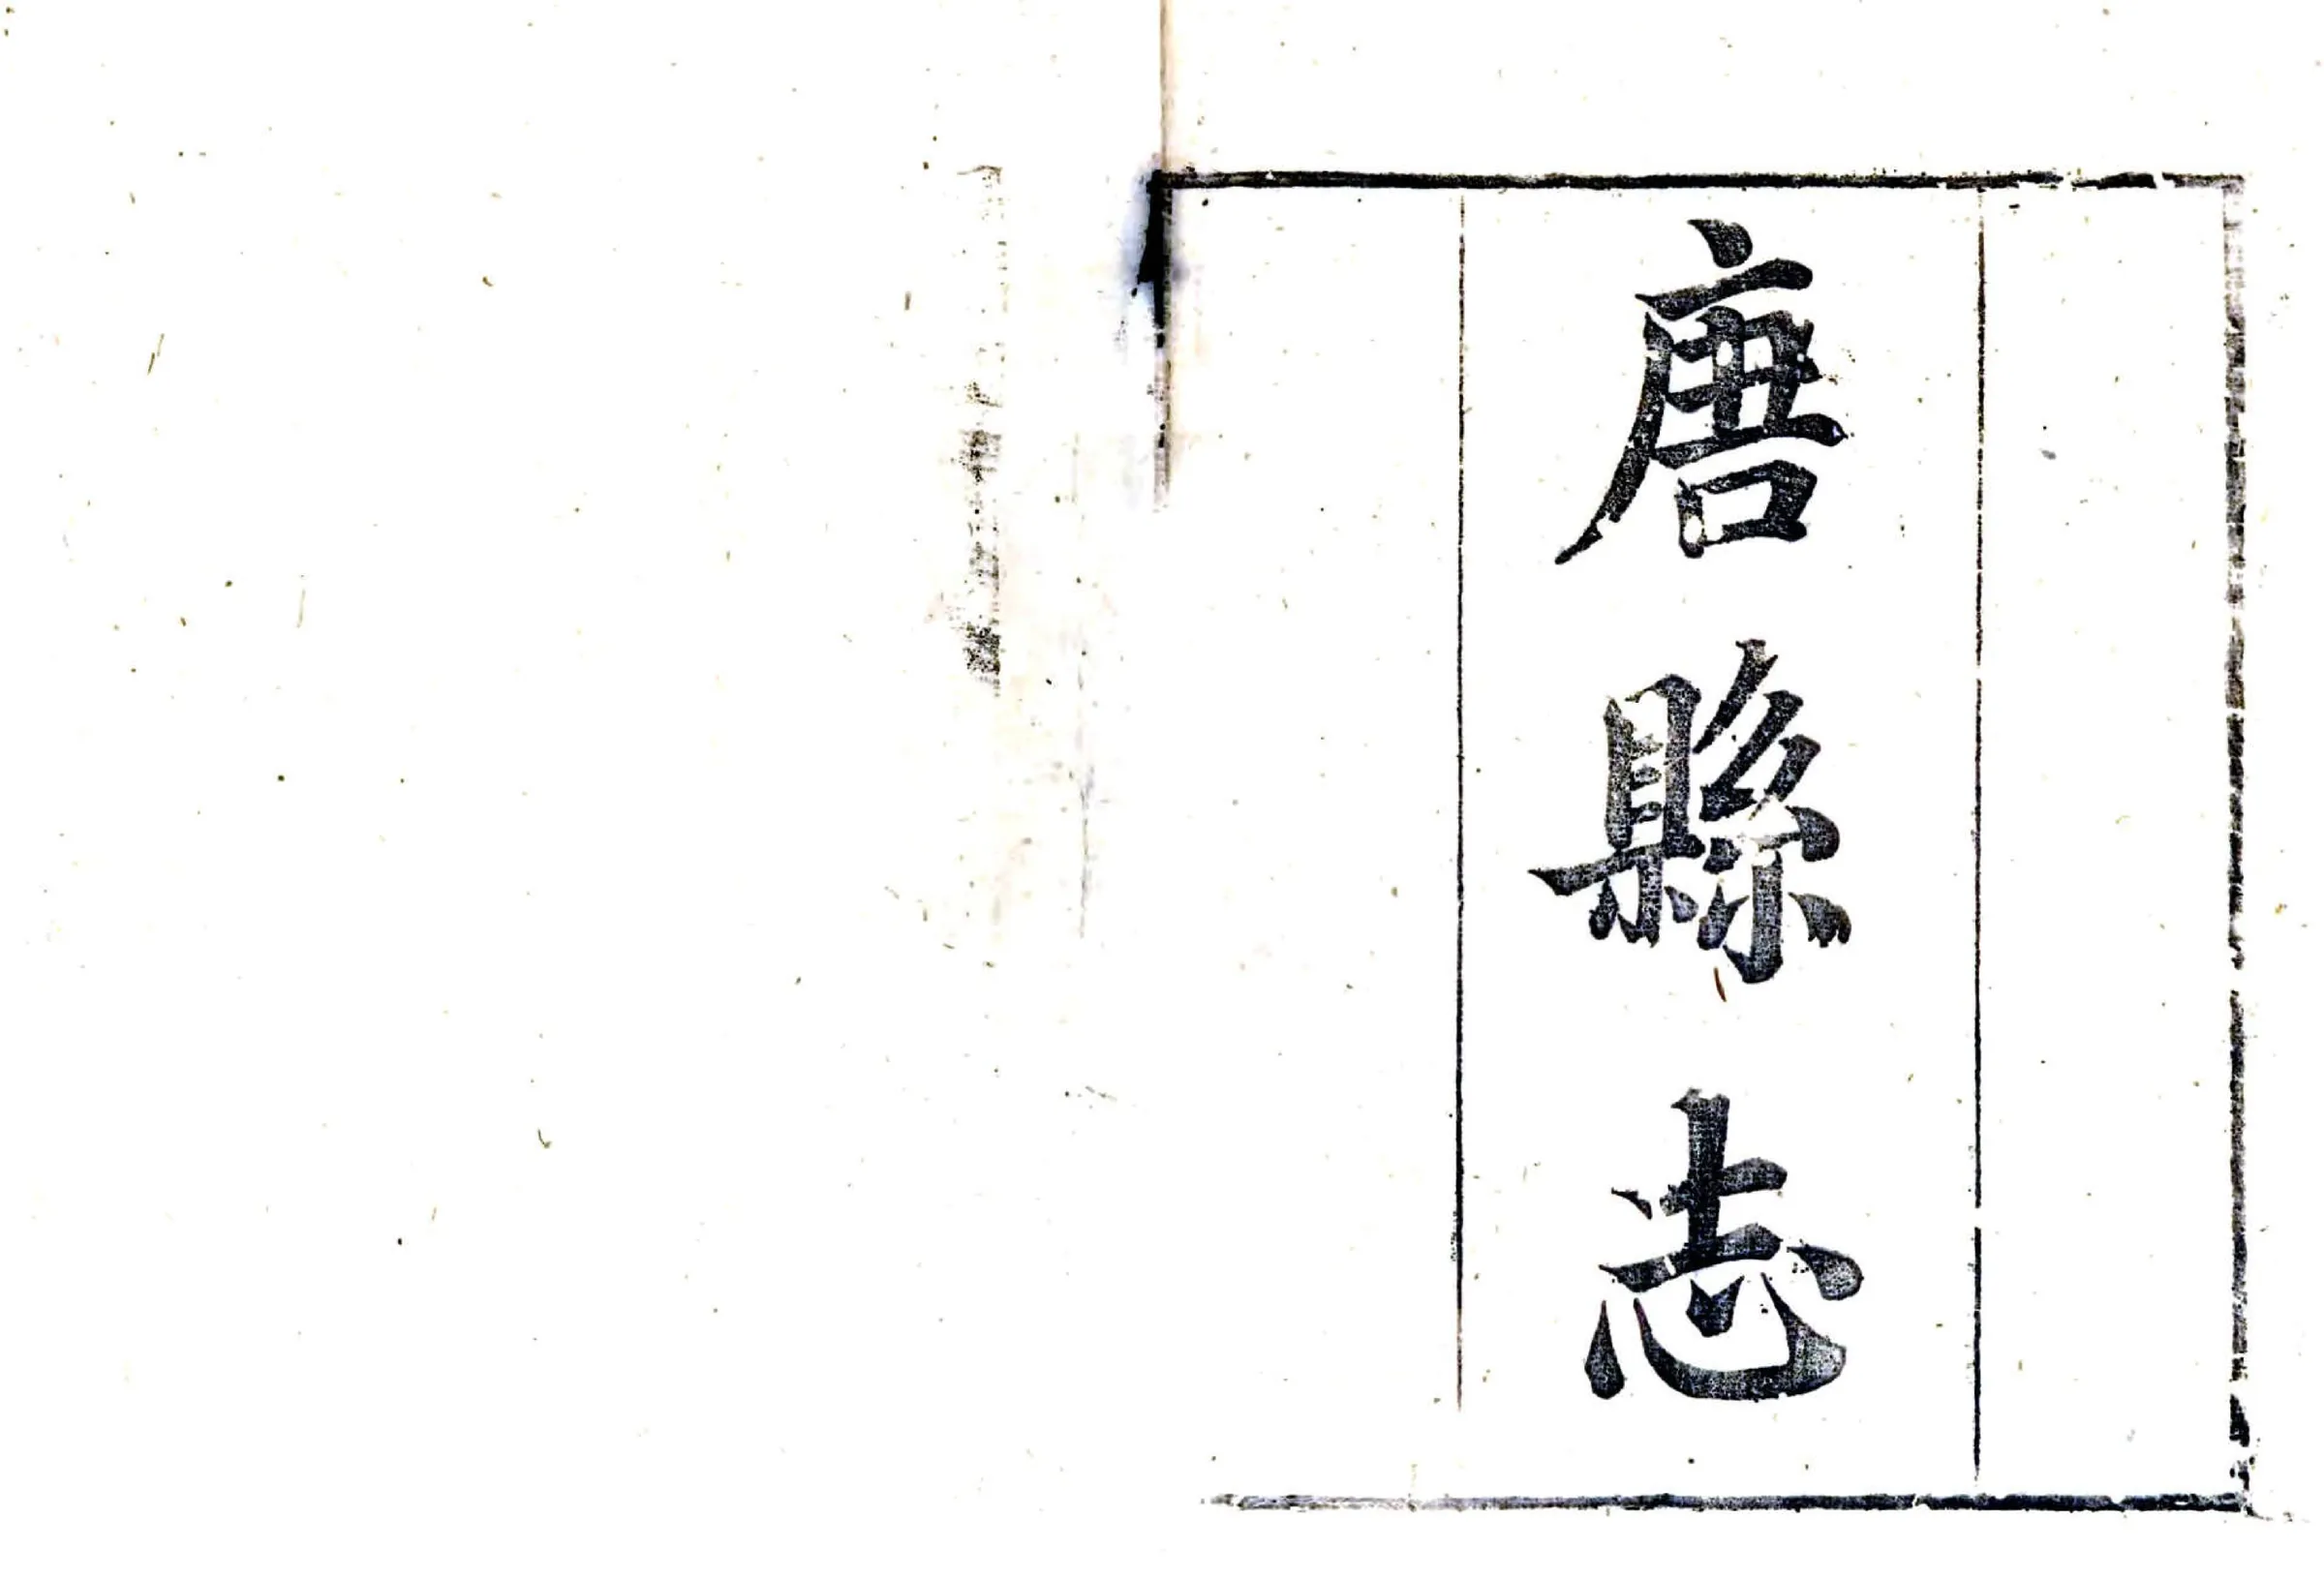 唐縣志